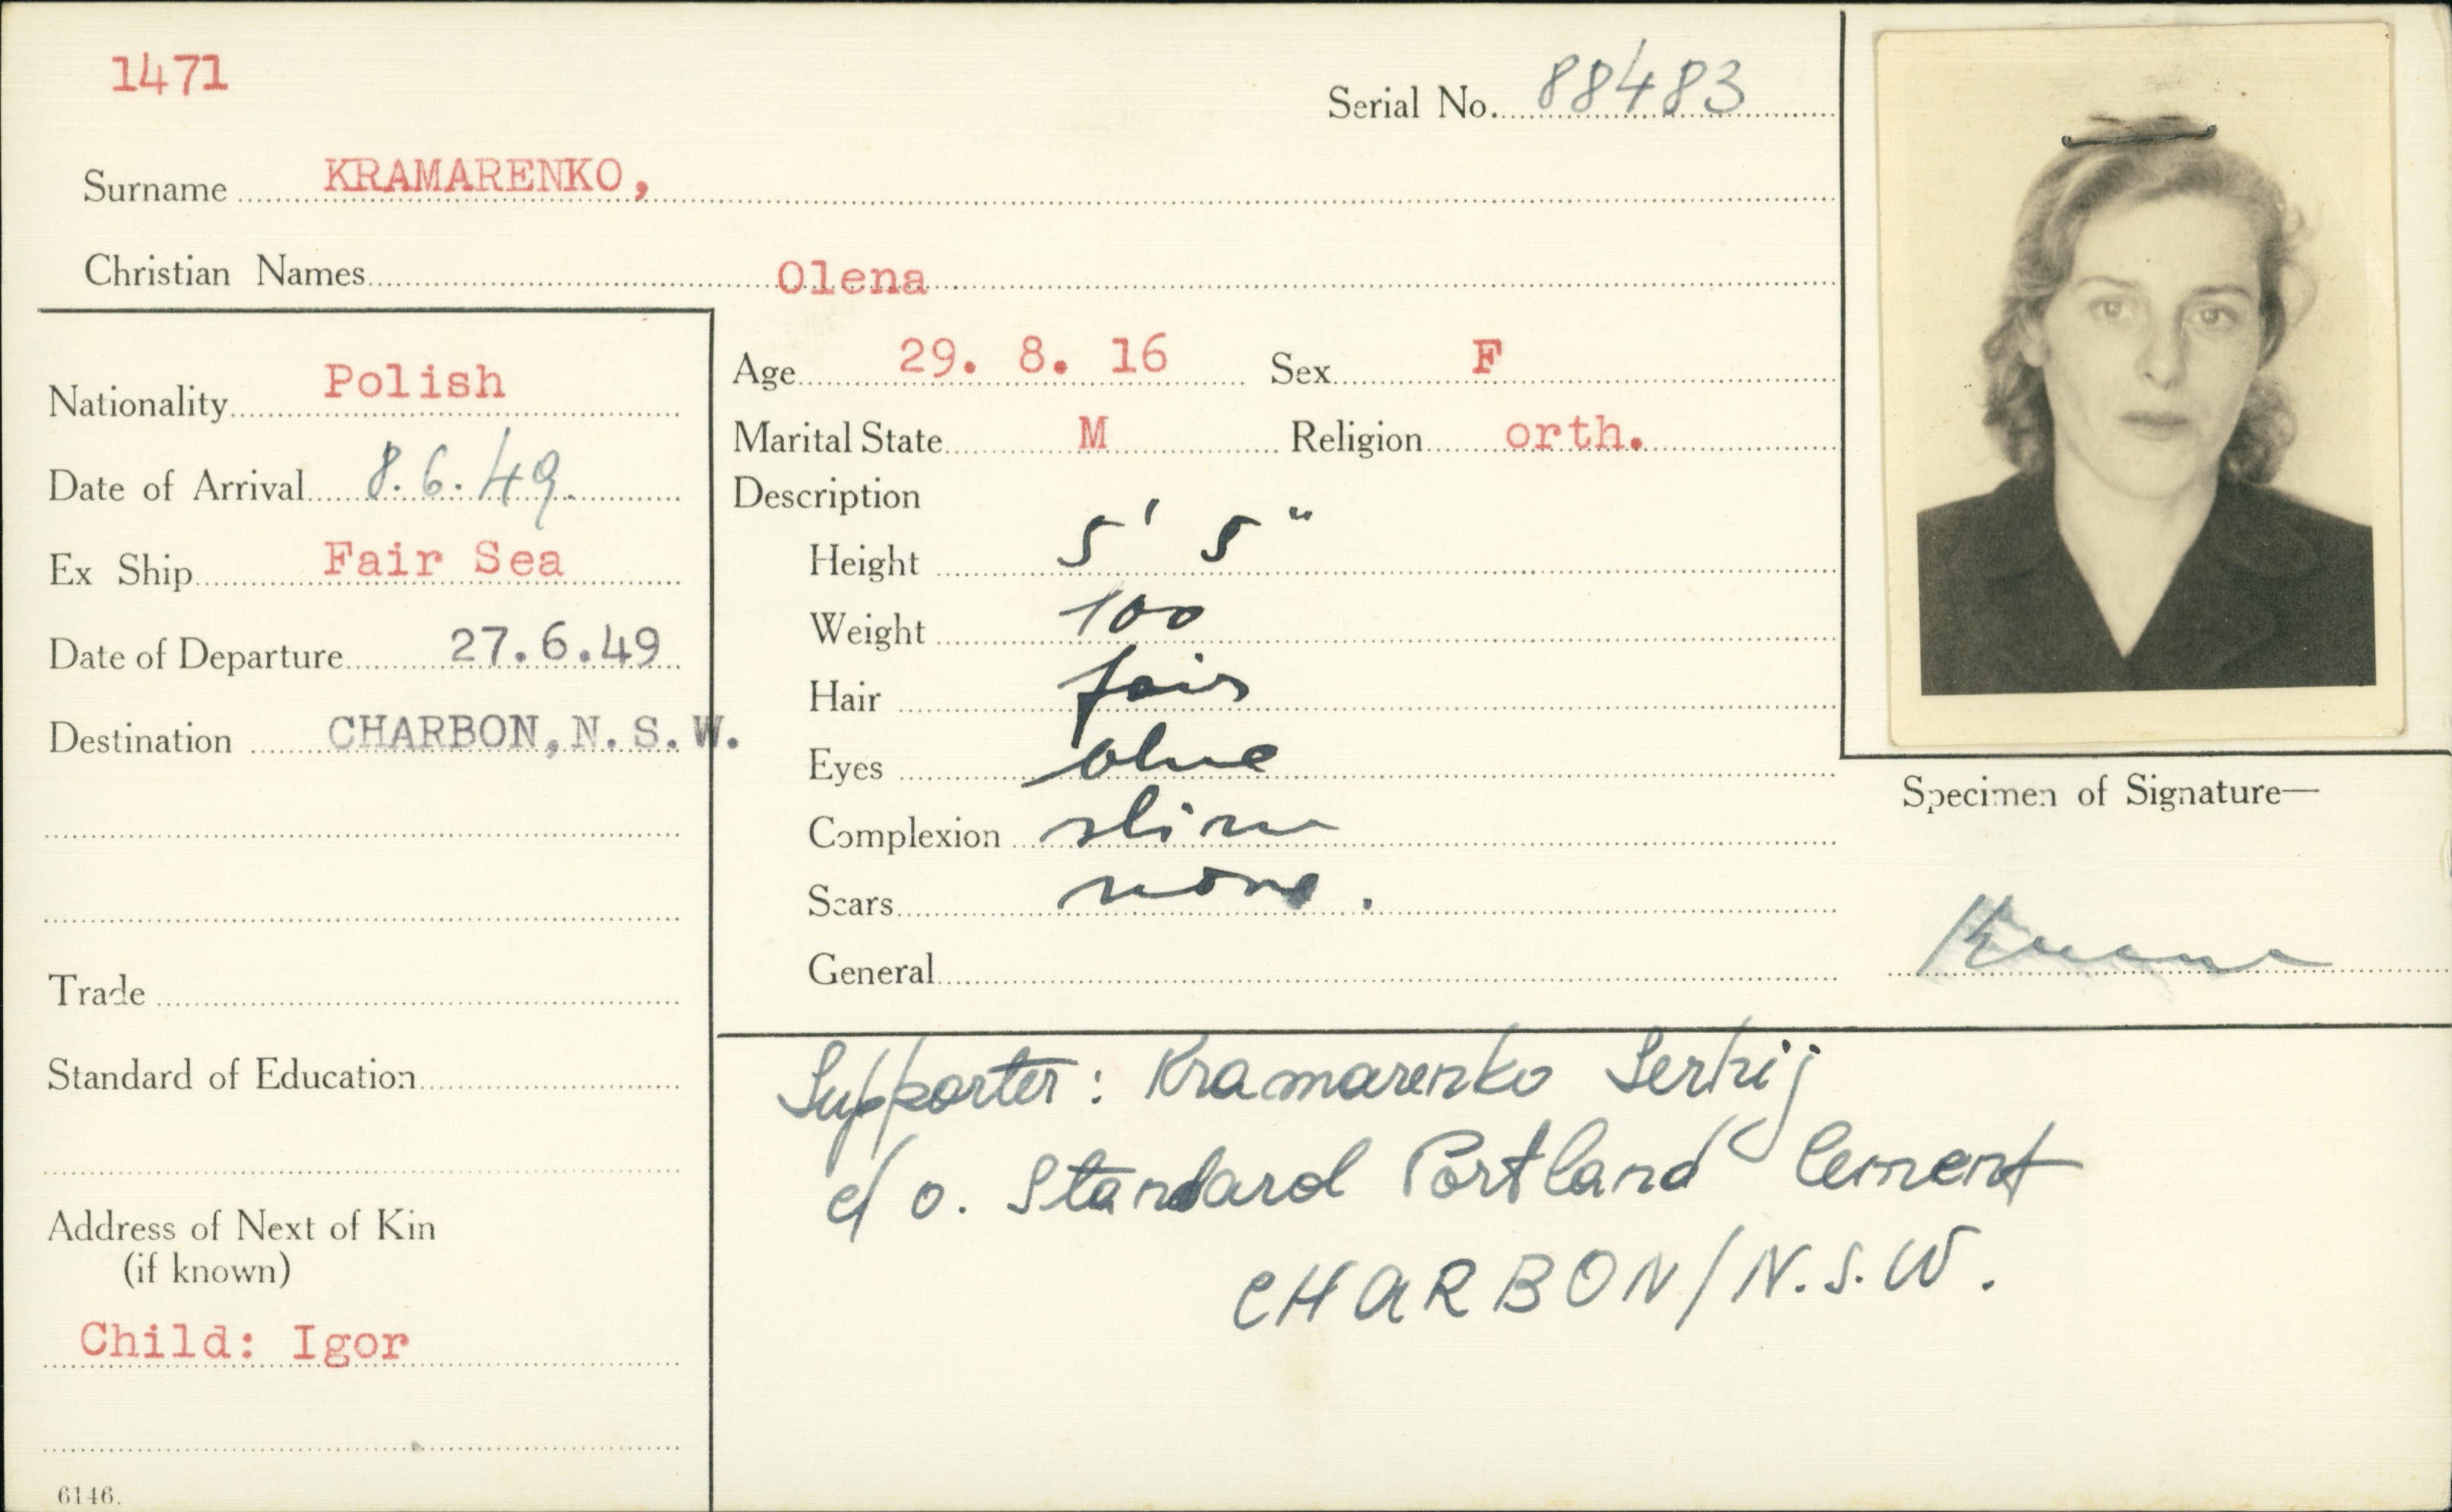 1471
Serial No. 88483
Surname KRAMARENKO,
Christian Names Olena
Nationality Polish
Date of Arrival 8.6.49.
Ex Ship Fair Sea
Date of Departure 27.6.49
Destination CHARBON,N.S.W.
Trade
Standard of Education
Address of Next of Kin
(if known)
Child: Igor
6146.
Age 29. 8. 16 Sex F
Marital State M Religion orth.
Description
Height 5' 5"
Weight 100
Hair fair
Eyes blue
Complexion slim
Scars none.
General
Specimen of Signature—
Supporter: Kramarenko Serhij
c/o. Standard Portland Cement
CHARBON/N.S.W.